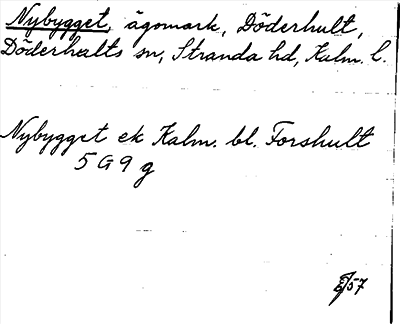 Nybygget, ägomark, Döderhult,
Döderhults sn, Stranda hd, Kalm. l.
Nybygget ek Kalm. bl. Forshult
5 G 9 g
57